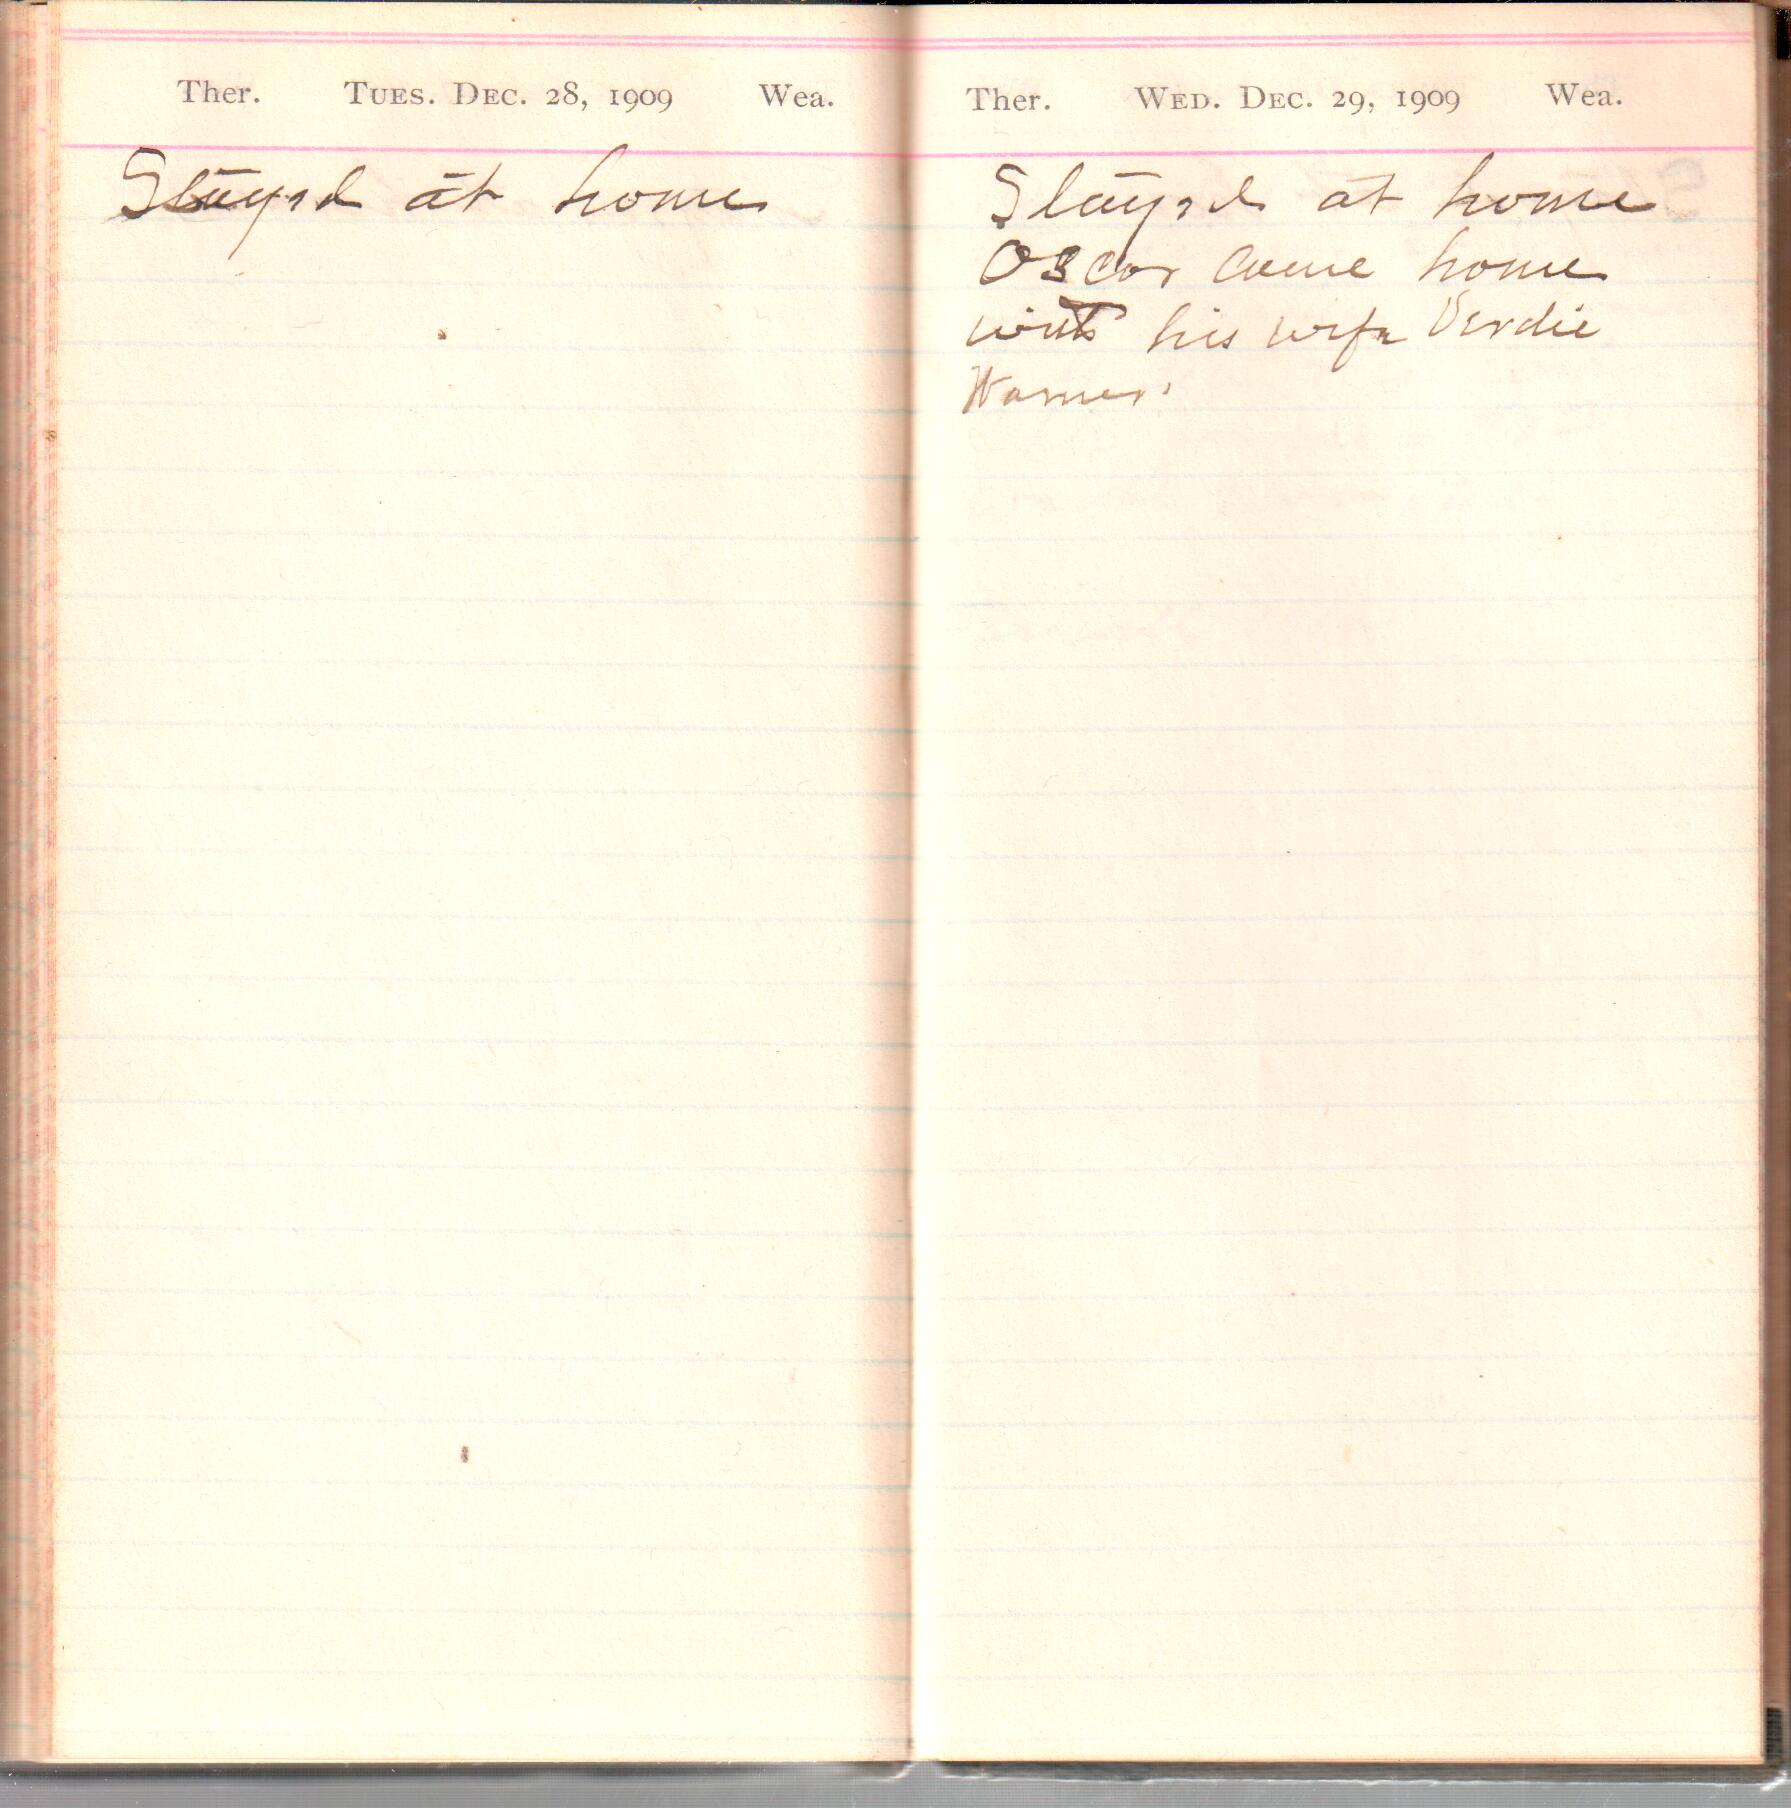 Ther. Tues. Dec. 28, 1909 Wea.
Stayed at home
Ther. Wed. Dec. 29, 1909 Wea.
Stayed at home
Oscar came home
with his wife Verdie
Warner.